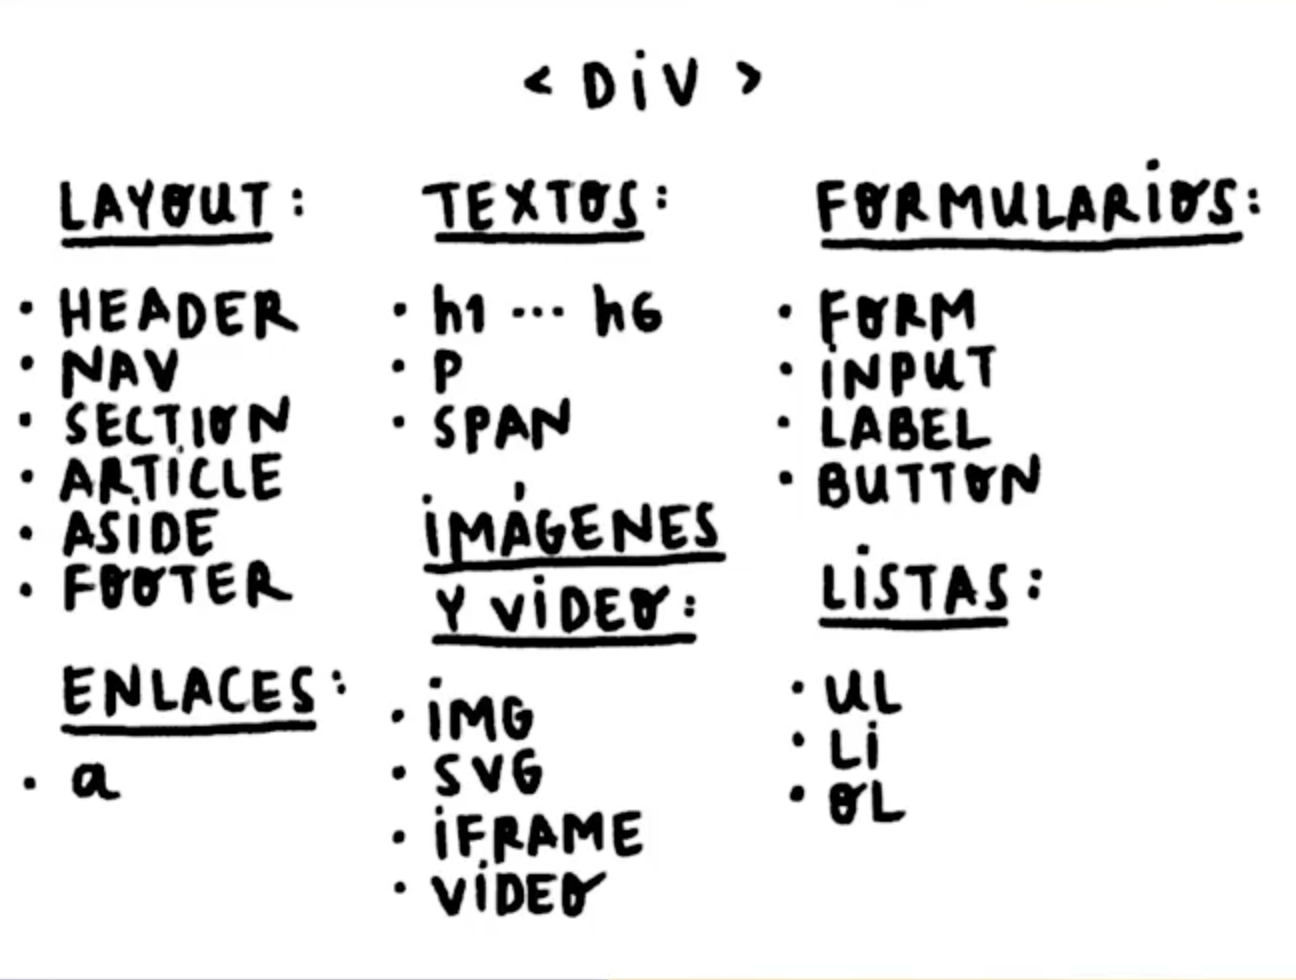 < DiV >
LAYOUT:
• HEADER
• NAV
• SECTION
• ARTICLE
• ASIDE
• FOOTER
ENLACES:
• a
TEXTOS:
• h1 ... h6
• P
• SPAN
IMÁGENES
Y VIDEO:
• IMG
• SVG
• IFRAME
• VIDEO
FORMULARIOS:
• FORM
• INPUT
• LABEL
• BUTTON
LISTAS:
• UL
• LI
• OL